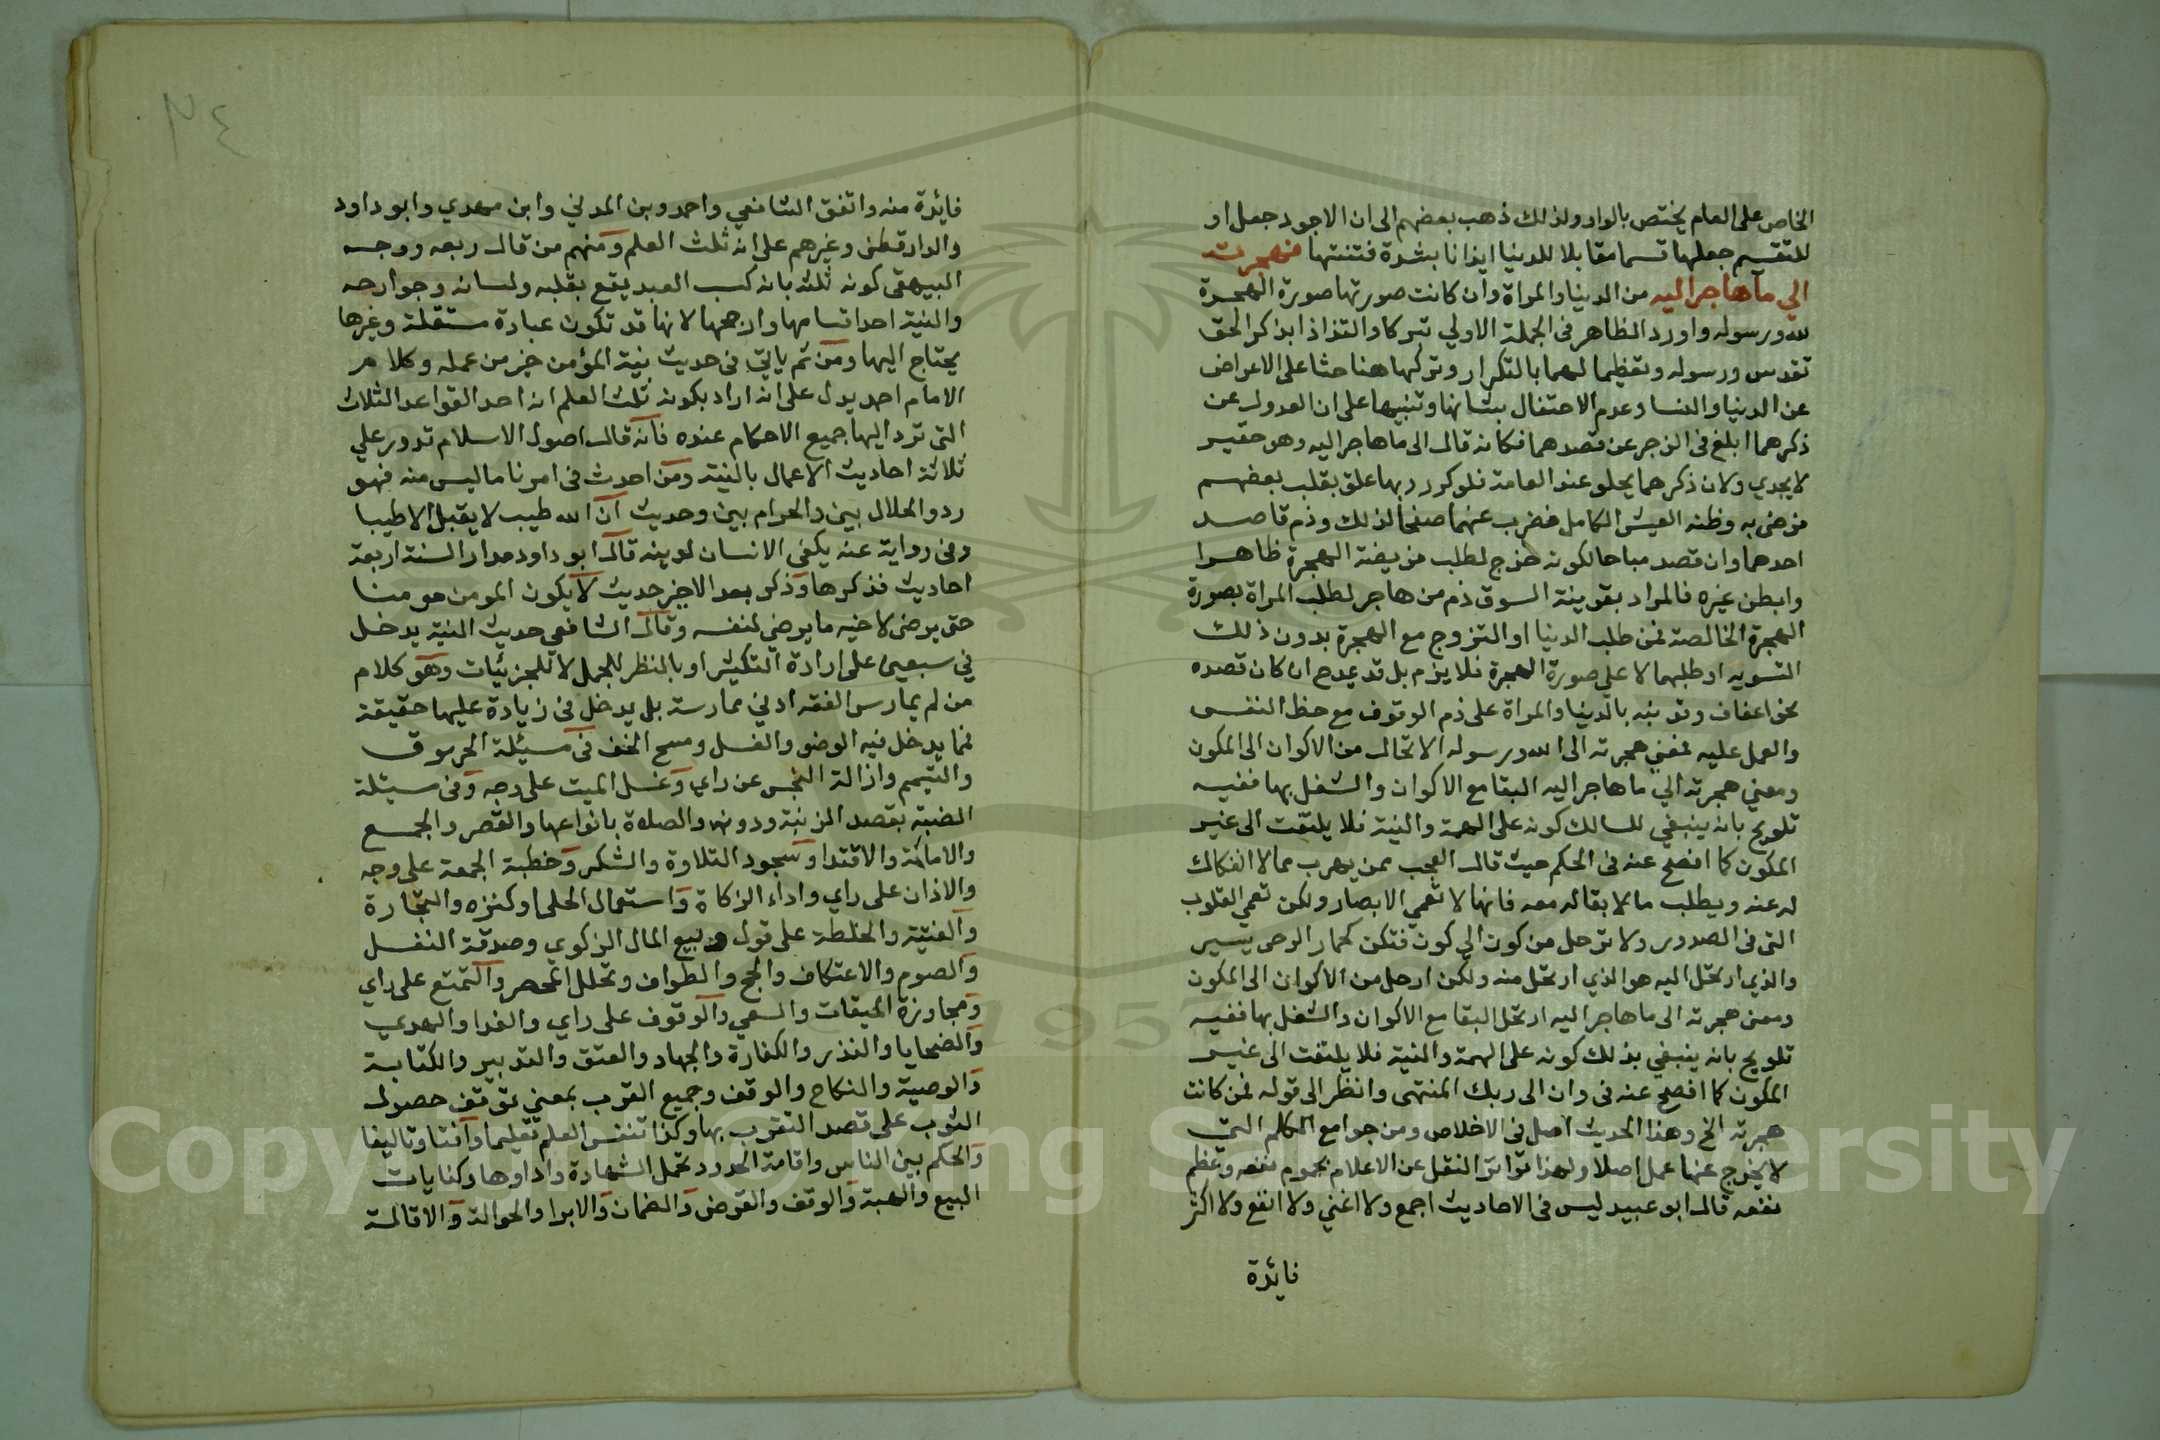 الخاص على العام يختص بالواو ولذلك ذهب بعضهم الى ان الاجود جعل او
للتقسيم جعلها قسما مقابلا للدنيا ايذانا بشدة فتنتها فهجرته
الي ما هاجر اليه من الدنيا والمراة وان كانت صورتها صورة الهجرة
لله ورسوله واورد الظاهر في الجملة الاولي تبركا والتذاذا بذكر الحق
تقدس ورسوله وتعظيما لهما بالتكرار وتركها هنا حثا على الاعراض
عن الدنيا والنسا وعدم الاحتفال بشانها وتنبيها على ان العدول عن
ذكرهما ابلغ في الزجر عن قصدهما فكانه قال الى ما هاجر اليه وهو حقير
لا يجدي ولان ذكرهما يحلو عند العامة فلو كرر ربما علق بقلب بعضهم
فرضى به وظنه العيش الكامل فضرب عنهما صفحا لذلك وذم قاصد
احدهما وان قصد مباحا لكونه خرج لطلب فريضة الهجرة ظاهرا
وابطن غيره فالمراد بقرينة السوق ذم من هاجر لطلب المراة بصورة
الهجرة الخالصة فمن طلب الدنيا او التزوج مع الهجرة بدون ذلك
التمويه او طلبهما لا على صورة الهجرة فلا يذم بل قد يمدح ان كان قصده
نحو اعفاف ونبه بالدنيا والمراة على ذم الوقوف مع حظ النفس
والعمل عليه فمعنى هجرته الى الله ورسوله الارتحال من الاكوان الى المكون
ومعنى هجرته الي ما هاجر اليه البقا مع الاكوان والشغل بها ففيه
تلويح بانه ينبغي للسالك كونه على الهمة والنية فلا يلتفت الى غير
المكون كما افصح عنه في الحكم حيث قال العجب ممن يهرب مما لا انفكاك
له عنه ويطلب ما لا بقا له معه فانها لا تعمي الابصار ولكن تعمي القلوب
التي في الصدور ولا ترحل من كون الي كون فتكن كحمار الرحى يسير
والذي ارتحل اليه هو الذي ارتحل منه ولكن ارحل من الاكوان الى المكون
ومعنى هجرته الى ما هاجر اليه ارتحل البقا مع الاكوان والشغل بها ففيه
تلويح بانه ينبغي بذلك كونه على الهمة والنية فلا يلتفت الى غير
المكون كما افصح عنه في وان الى ربك المنتهى وانظر الى قوله فمن كانت
هجرته الخ وهذا الحديث اصل في الاخلاص ومن جوامع الكلم التي
لا يخرج عنها عمل اصلا ولهذا تواتر النقل عن الاعلام بعموم نفعه وعظم
نفعه قال ابو عبيد ليس في الاحاديث اجمع ولا اغني ولا انفع ولا اكثر
فايدة
٣٤
فايدة منه واتفق الشافعي واحمد وبن المدني وابن مهدي وابو داود
والدارقطني وغيرهم على انه ثلث العلم ومنهم من قال ربعه ووجه
البيهقي كونه ثلثه بان كسب العبد يقع بقلبه ولسانه وجوارحه
والنية احد اقسامها وارجحها لانها قد تكون عبادة مستقلة وغيرها
يحتاج اليها ومن ثم ياتي في حديث نية المؤمن خير من عمله وكلام
الامام احمد يدل على انه اراد بكونه ثلث العلم انه احد القواعد الثلاث
التي ترد اليها جميع الاحكام عنده فانه قال اصول الاسلام تدور علي
ثلاثة احاديث الاعمال بالنية ومن احدث في امرنا ما ليس منه فهو
رد والحلال بين والحرام بين وحديث ان الله طيب لا يقبل الا طيبا
وفي رواية عنه يكفي الانسان لدينه قال ابو داود مدار السنة اربعة
احاديث فذكرها وذكر بعد الاخير حديث لا يكون المومن مومنا
حتى يرضى لاخيه ما يرضى لنفسه وقال الشافعي حديث النية يدخل
في سبعين على ارادة التكثير او بالنظر للجمل لا للجزئيات وهو كلام
من لم يمارس الفقه ادني ممارسة بل يدخل في زيادة عليها حقيقة
فما يدخل فيه الوضو والغسل ومسح الخف في مسئلة الجرموق
والتيمم وازالة النجس عن راي وغسل الميت على وجه وفي مسئلة
الضبة بقصد الزينة ودونه والصلاة بانواعها والقصر والجمع
والامامة والاقتدا وسجود التلاوة والشكر وخطبة الجمعة على وجه
والاذان على راي واداء الزكاة واستعمال الحلي او كنزه والتجارة
والقنية والخلطة على قول وبيع المال الزكوي وصدقة النفل
والصوم والاعتكاف والحج والطواف وتحلل المحصر والتمتع على راي
ومجاوزة الميقات والسعي والوقوف على راي والفدا والهدي
والضحايا والنذر والكفارة والجهاد والعتق والتدبير والكتابة
والوصية والنكاح والوقف وجميع القرب بمعني توقف حصول
الثوب على قصد التقرب بها وكذا نفس العلم تعليما وافتا وتاليفا
والحكم بين الناس واقامة الحدود تحمل الشهادة واداوها وكنايات
البيع والهبة والوقف والقرض والضمان والابرا والحوالة والاقالة
Copyright © King Saud University
1957